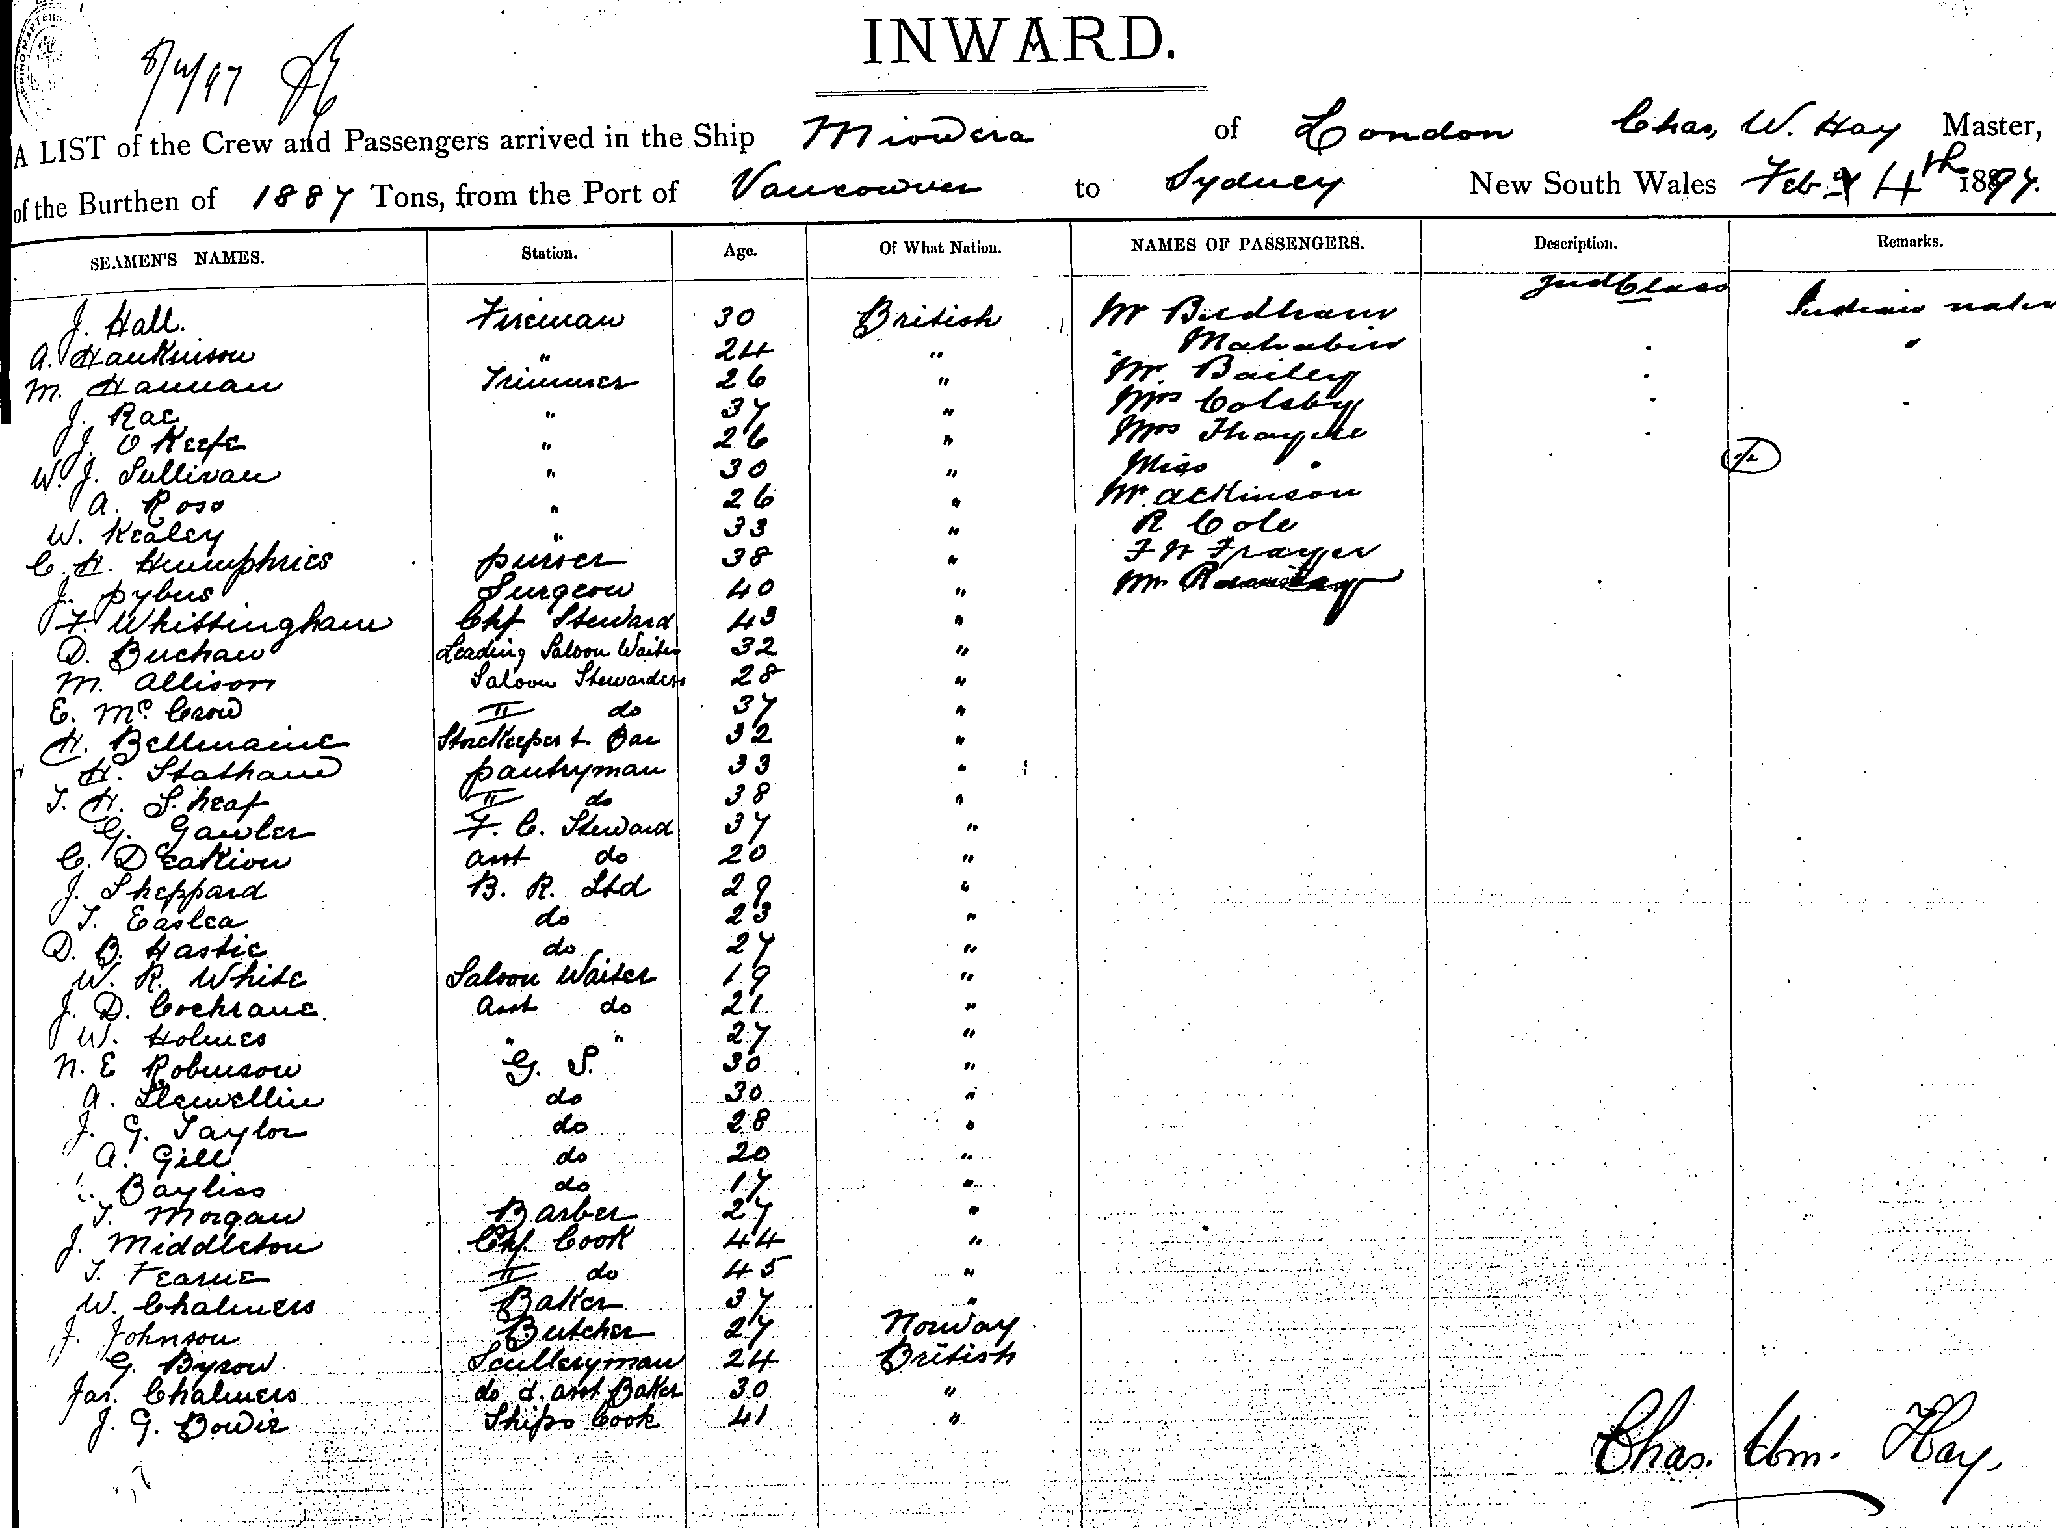 INWARD.
A LIST of the Crew and Passengers arrived in the Ship Miowera of London Chas. W. Hay Master,
of the Burthen of 1887 Tons, from the Port of Vancouver to Sydney New South Wales Feby 4th 1897.
SEAMEN'S NAMES. Station. Age. Of What Nation. NAMES OF PASSENGERS. Description. Remarks.
J. Hall. Fireman 30 British Mr Budham 2nd Class Indian
A. Hankinson " 24 " Mahabir
M. Hannan Trimmer 26 " Mr. Bailey
J. Rae " 37 " Mrs Colsby
J. O Keefe " 26 " Mrs Thayne
W. J. Sullivan " 30 " Miss "
A. Ross " 26 " Mr. Atkinson
W. Kealey " 33 " R Cole
C. H. Humphries purser 38 " F W Frayer
J. pybus Surgeon 40 " Mr
F. Whittingham Chf Steward 43 "
D. Buchan Leading Saloon Waiter 32 "
M. Allison Saloon Stewardess 28 "
E. McCrow II do 37 "
H. Bellmaine Storekeeper & Bar 32 "
H. Statham pantryman 33 "
T. H. Sheaf II do 38 "
G. Gawler F. C. Steward 37 "
C. Deakion asst do 20 "
J. Sheppard B. R. Std 29 "
T. Easlea do 23 "
D. B. Hastie do 27 "
W. R. White Saloon Waiter 19 "
J. D. Cochrane. Asst do 21 "
W. Holmes " " 27 "
N. E Robinson G. S. 30 "
A. Llewellin do 30 "
J. G. Taylor do 28 "
A. Gill do 20 "
Bayliss do 17 "
T. Morgan Barber 27 "
J. Middleton Chf. Cook 44 "
T. Fearne II do 45 "
W. Chalmers Baker 37 "
J. Johnson Butcher 27 Norway
G. Byron Sculleryman 24 British
Jas. Chalmers do & asst Baker 30 "
J. G. Bowie Ships Cook 41 "
Chas. Wm. Hay.